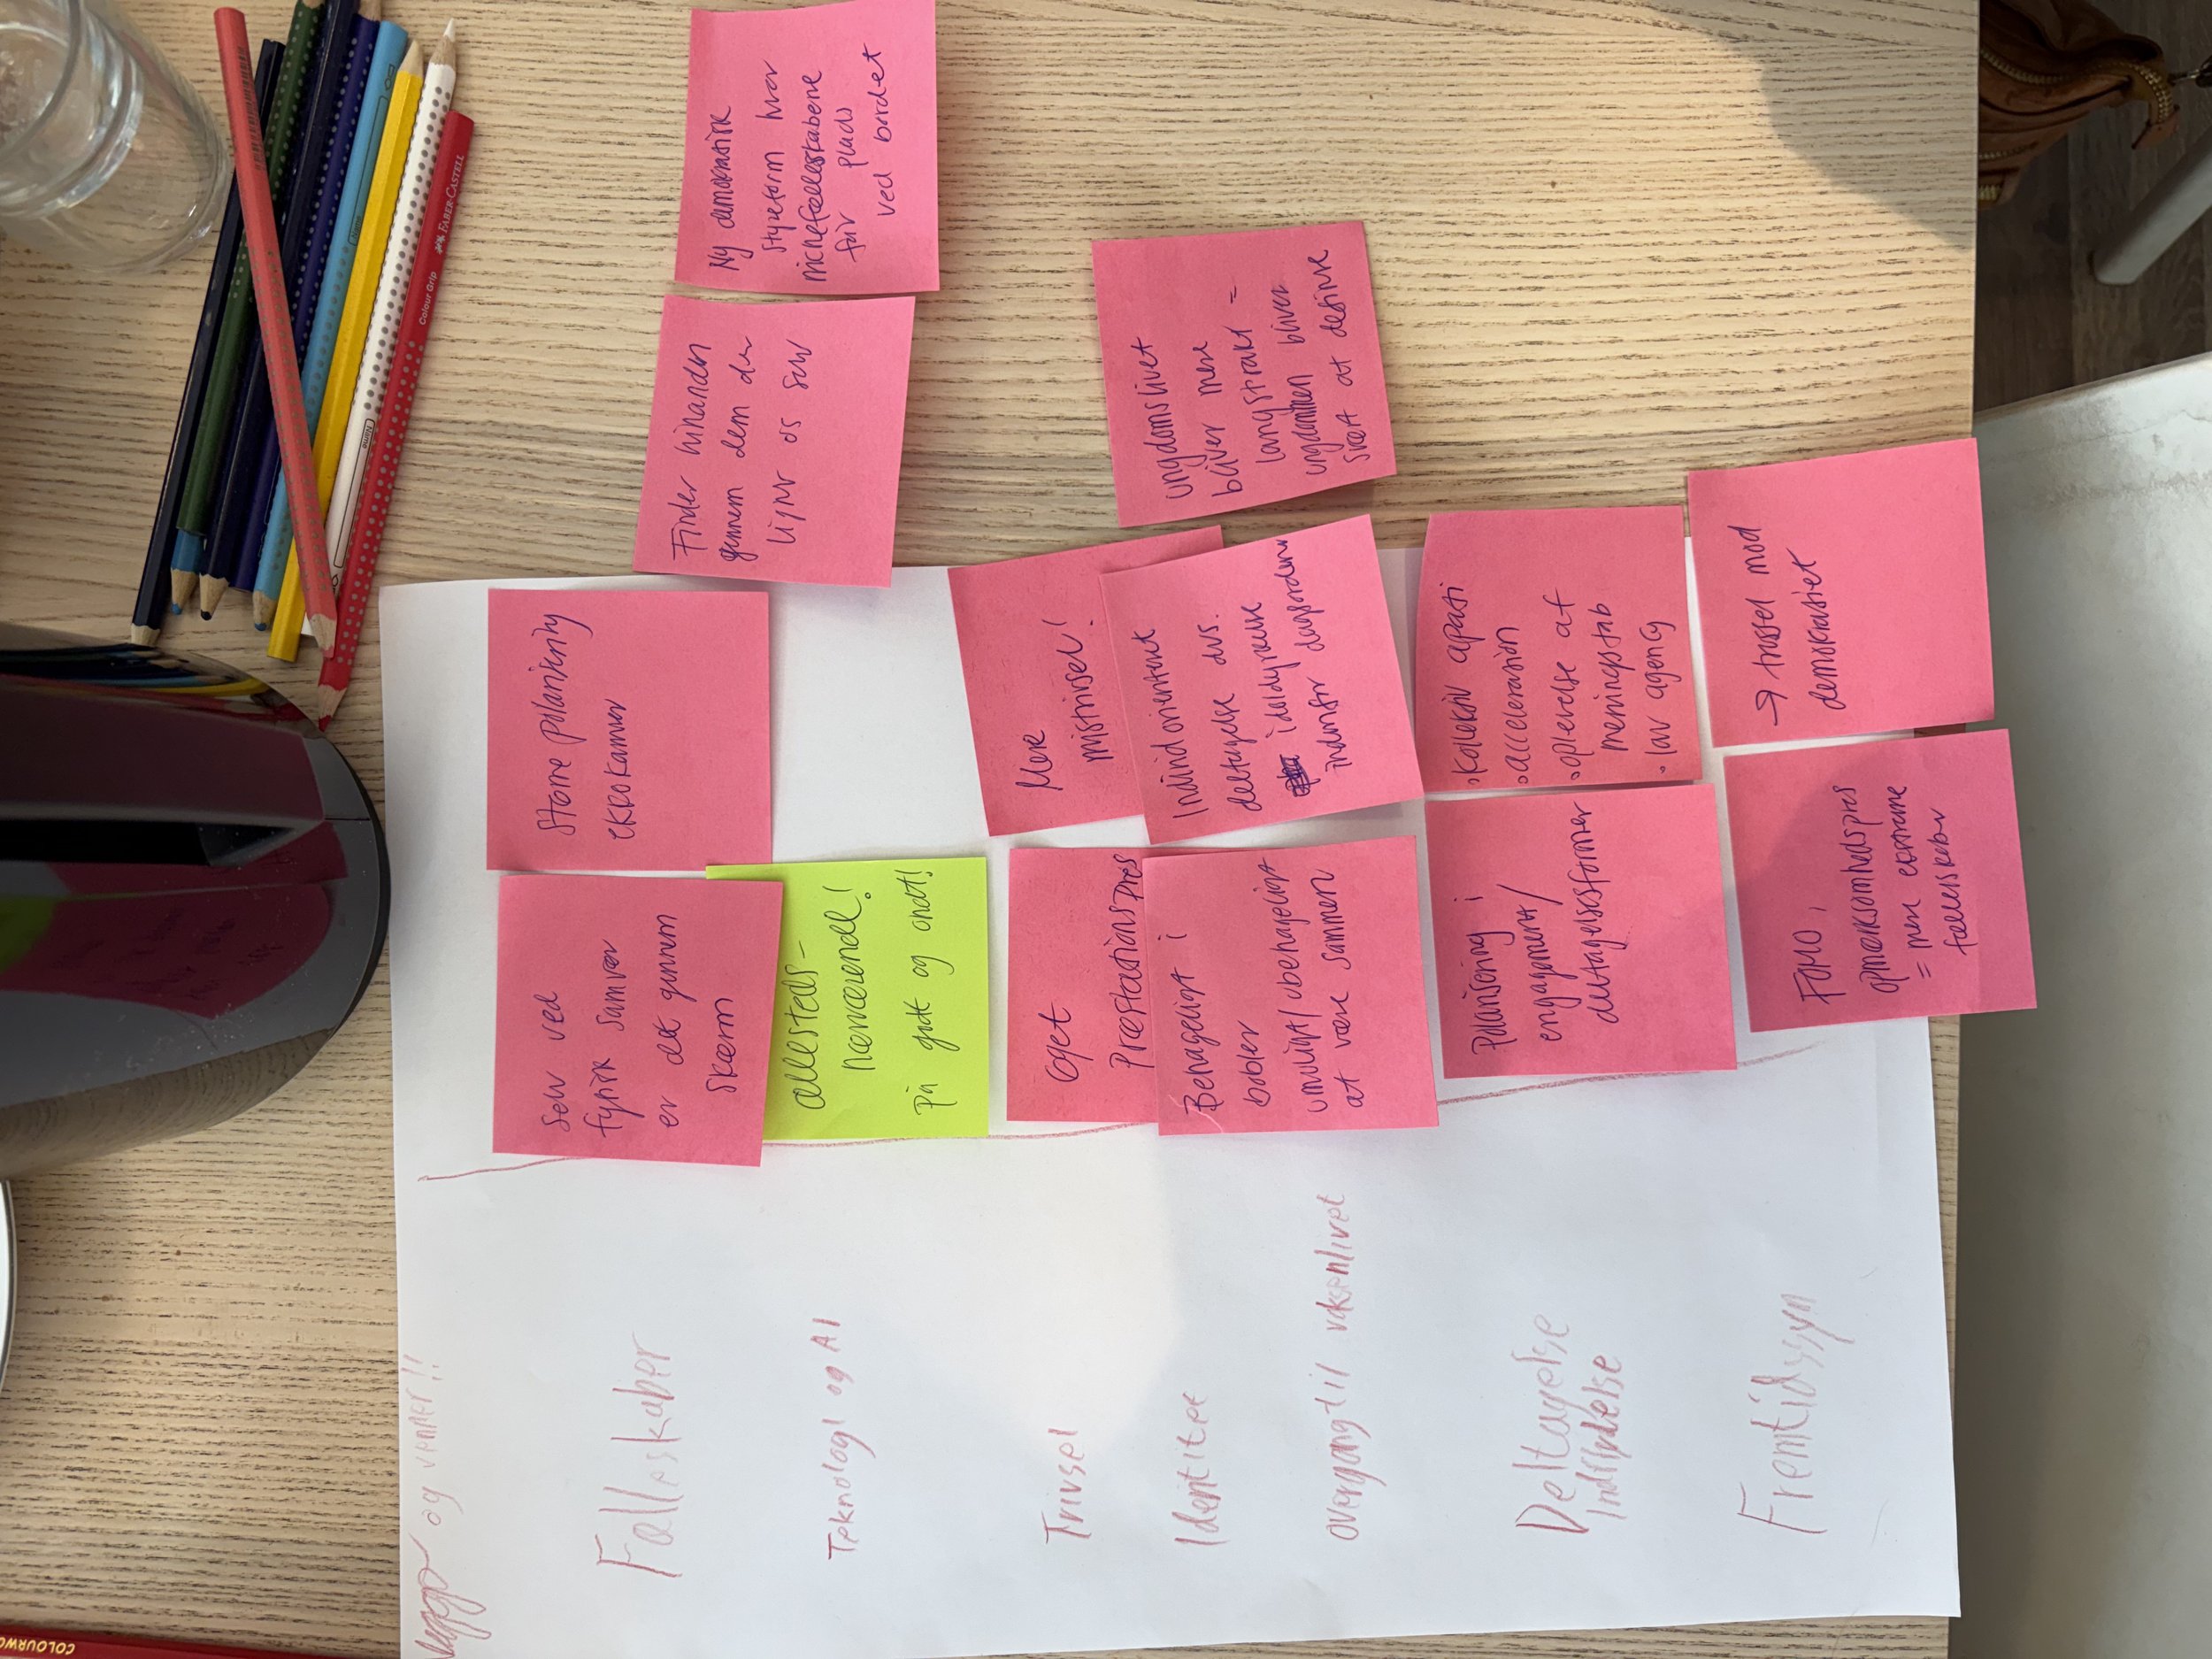 og venner!!
Fælleskaber
Selv ved
fysisk samvær
er det gennem
skærm
Større polarisering
ekkokamre
Finder hinanden
gennem dem der
ligner os selv
Ny demokratisk
styreform hvor
nichefællesskabene
får plads
ved bordet
Teknologi og AI
allesteds-
nærværende!
på godt og ondt!
Trivsel
Øget
Præstationspres
Mere
mistrivsel!
Identitet
Behageligt i
bobler
umuligt/ubehageligt
at være sammen
Individorienteret
deltagelse dvs.
idoldyrkelse
indenfor dagsordner
overgang til voksenlivet
ungdomslivet
bliver mere
langstrakt =
ungdommen bliver
svært at definere
Deltagelse
Indflydelse
Polarisering i
engagement/
deltagelsesformer
• kollektiv apati
• acceleration
• oplevelse af
meningstab
• lav agency
Fremtidssyn
FOMO,
opmærksomhedspres
= mere ekstreme
fælleskaber
→ trussel mod
demokratiet
Colour Grip FABER-CASTELL
Name
Name
COLOURWO